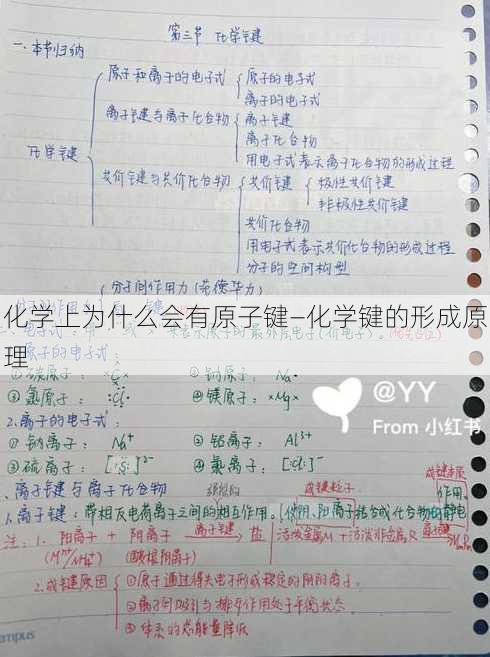 第三节 化学键
一.本节归纳
原子和离子的电子式
原子的电子式
离子的电子式
离子键与离子化合物
离子键
离子化合物
用电子式表示离子化合物的形成过程
化学键
共价键与共价化合物
共价键
极性共价键
非极性共价键
共价化合物
用电子式表示共价化合物的形成过程
分子的空间构型
分子间作用力(范德华力)
化学上为什么会有原子键—化学键的形成原
理
碳原子:
②钠原子: Na·
③氯原子:
④镁原子: ×Mg×
@YY
From 小红书
2.离子的电子式:
①钠离子: Na⁺
②铝离子: Al³⁺
③硫离子: [:S:]²⁻
④氯离子: [:Cl:]⁻
离子键与离子化合物
成键粒子
成键本质
1.离子键:带相反电荷离子之间的相互作用。
注:1.阳离子 + 阴离子 离子键 盐
活泼金属M + 活泼非金属R
2.成键原因
①原子通过得失电子形成稳定的阴阳离子.
②离子间吸引与排斥作用处于平衡状态.
③体系的总能量降低
ampus